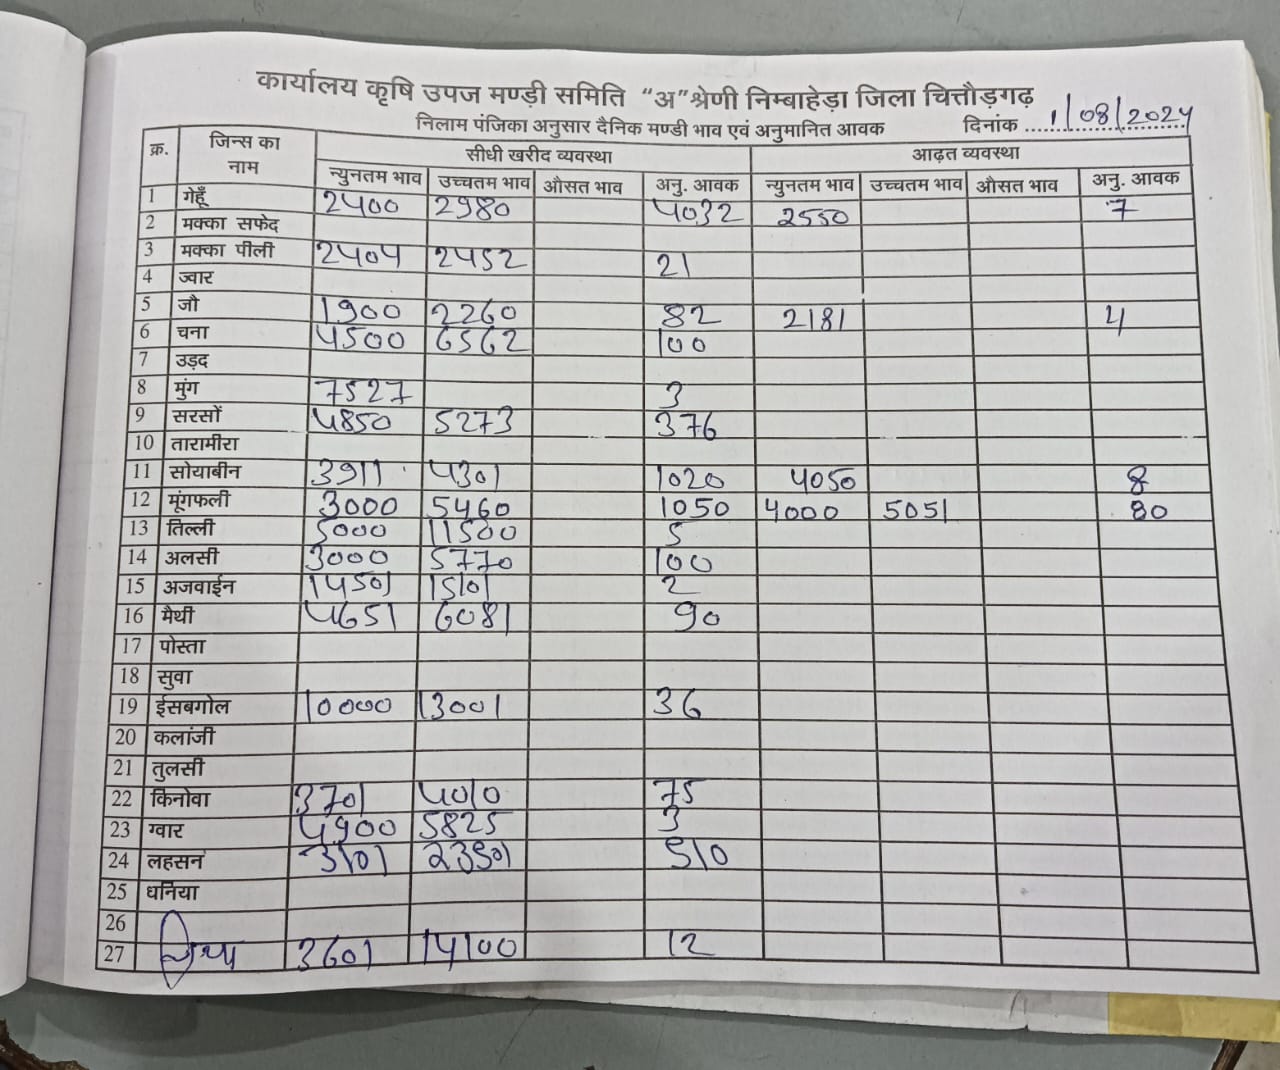 कार्यालय कृषि उपज मण्डी समिति "अ" श्रेणी निम्बाहेड़ा जिला चित्तौड़गढ़
निलाम पंजिका अनुसार दैनिक मण्डी भाव एवं अनुमानित आवक दिनांक 1/08/2024
क्र. जिन्स का नाम सीधी खरीद व्यवस्था आढ़त व्यवस्था
न्युनतम भाव उच्चतम भाव औसत भाव अनु. आवक न्युनतम भाव उच्चतम भाव औसत भाव अनु. आवक
1 गेहूँ 2400 2980 4032 2550 7
2 मक्का सफेद
3 मक्का पीली 2404 2452 21
4 ज्वार
5 जौ 1900 2260 82 2181 4
6 चना 4500 6562 100
7 उड़द
8 मुंग 7527 3
9 सरसों 4850 5273 376
10 तारामीरा
11 सोयाबीन 3911 4301 1020 4050 8
12 मूंगफली 3000 5460 1050 4000 5051 80
13 तिल्ली 5000 11500 5
14 अलसी 3000 5770 100
15 अजवाईन 14501 15101 2
16 मैथी 4651 6081 90
17 पोस्ता
18 सुवा
19 ईसबगोल 10000 13001 36
20 कलांजी
21 तुलसी
22 किनोवा 3701 4010 75
23 ग्वार 4900 5825 3
24 लहसन 3101 23501 510
25 धनिया
26
27 3601 14100 12